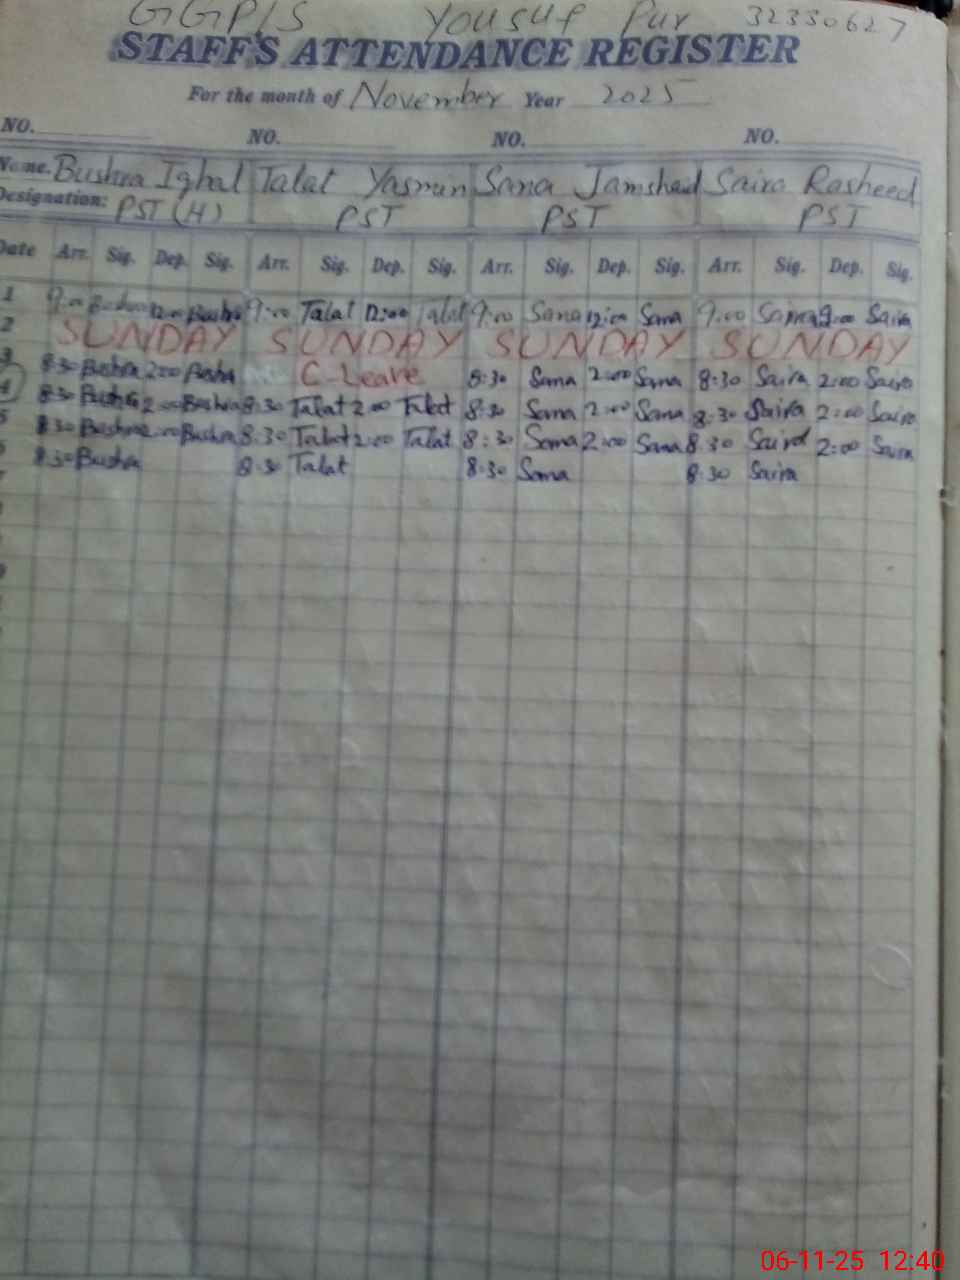 GGP/S Yousuf Pur 32330627
STAFF'S ATTENDANCE REGISTER
For the month of November Year 2025
NO. NO. NO. NO.
Name. Bushra Iqbal Talat Yasmin Sana Jamshaid Saira Rasheed
Designation: PST (H) PST PST PST
Date Arr. Sig. Dep. Sig. Arr. Sig. Dep. Sig. Arr. Sig. Dep. Sig. Arr. Sig. Dep. Sig.
1 9:00 Bushra 12:00 Bushra 9:00 Talat 12:00 Talat 9:00 Sana 12:00 Sana 9:00 Saira Saira
2 SUNDAY SUNDAY SUNDAY SUNDAY
3 8:30 Bushra 2:00 Bushra C-Leave 8:30 Sana 2:00 Sana 8:30 Saira 2:00 Saira
4 8:30 Bushra 2:00 Bushra 8:30 Talat 2:00 Talat 8:30 Sana 2:00 Sana 8:30 Saira 2:00 Saira
5 8:30 Bushra 2:00 Bushra 8:30 Talat 2:00 Talat 8:30 Sana 2:00 Sana 8:30 Saira 2:00 Saira
8:30 Bushra 8:30 Talat 8:30 Sana 8:30 Saira
06-11-25 12:40